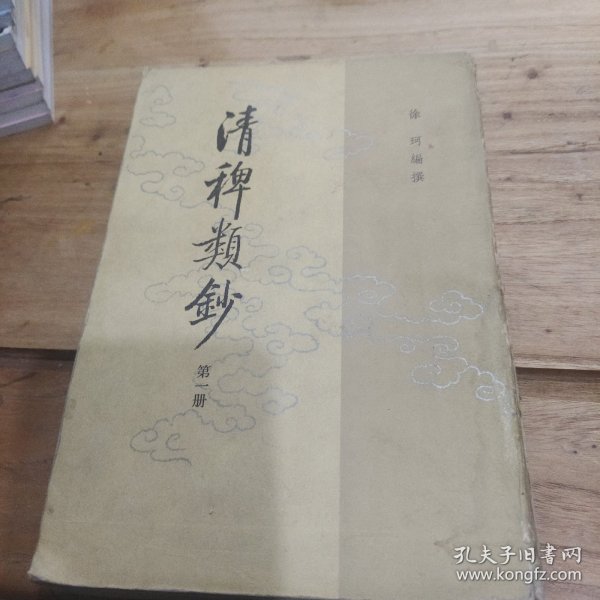 清稗類鈔
第一册
徐珂編撰
孔夫子旧书网
www.kongfz.com